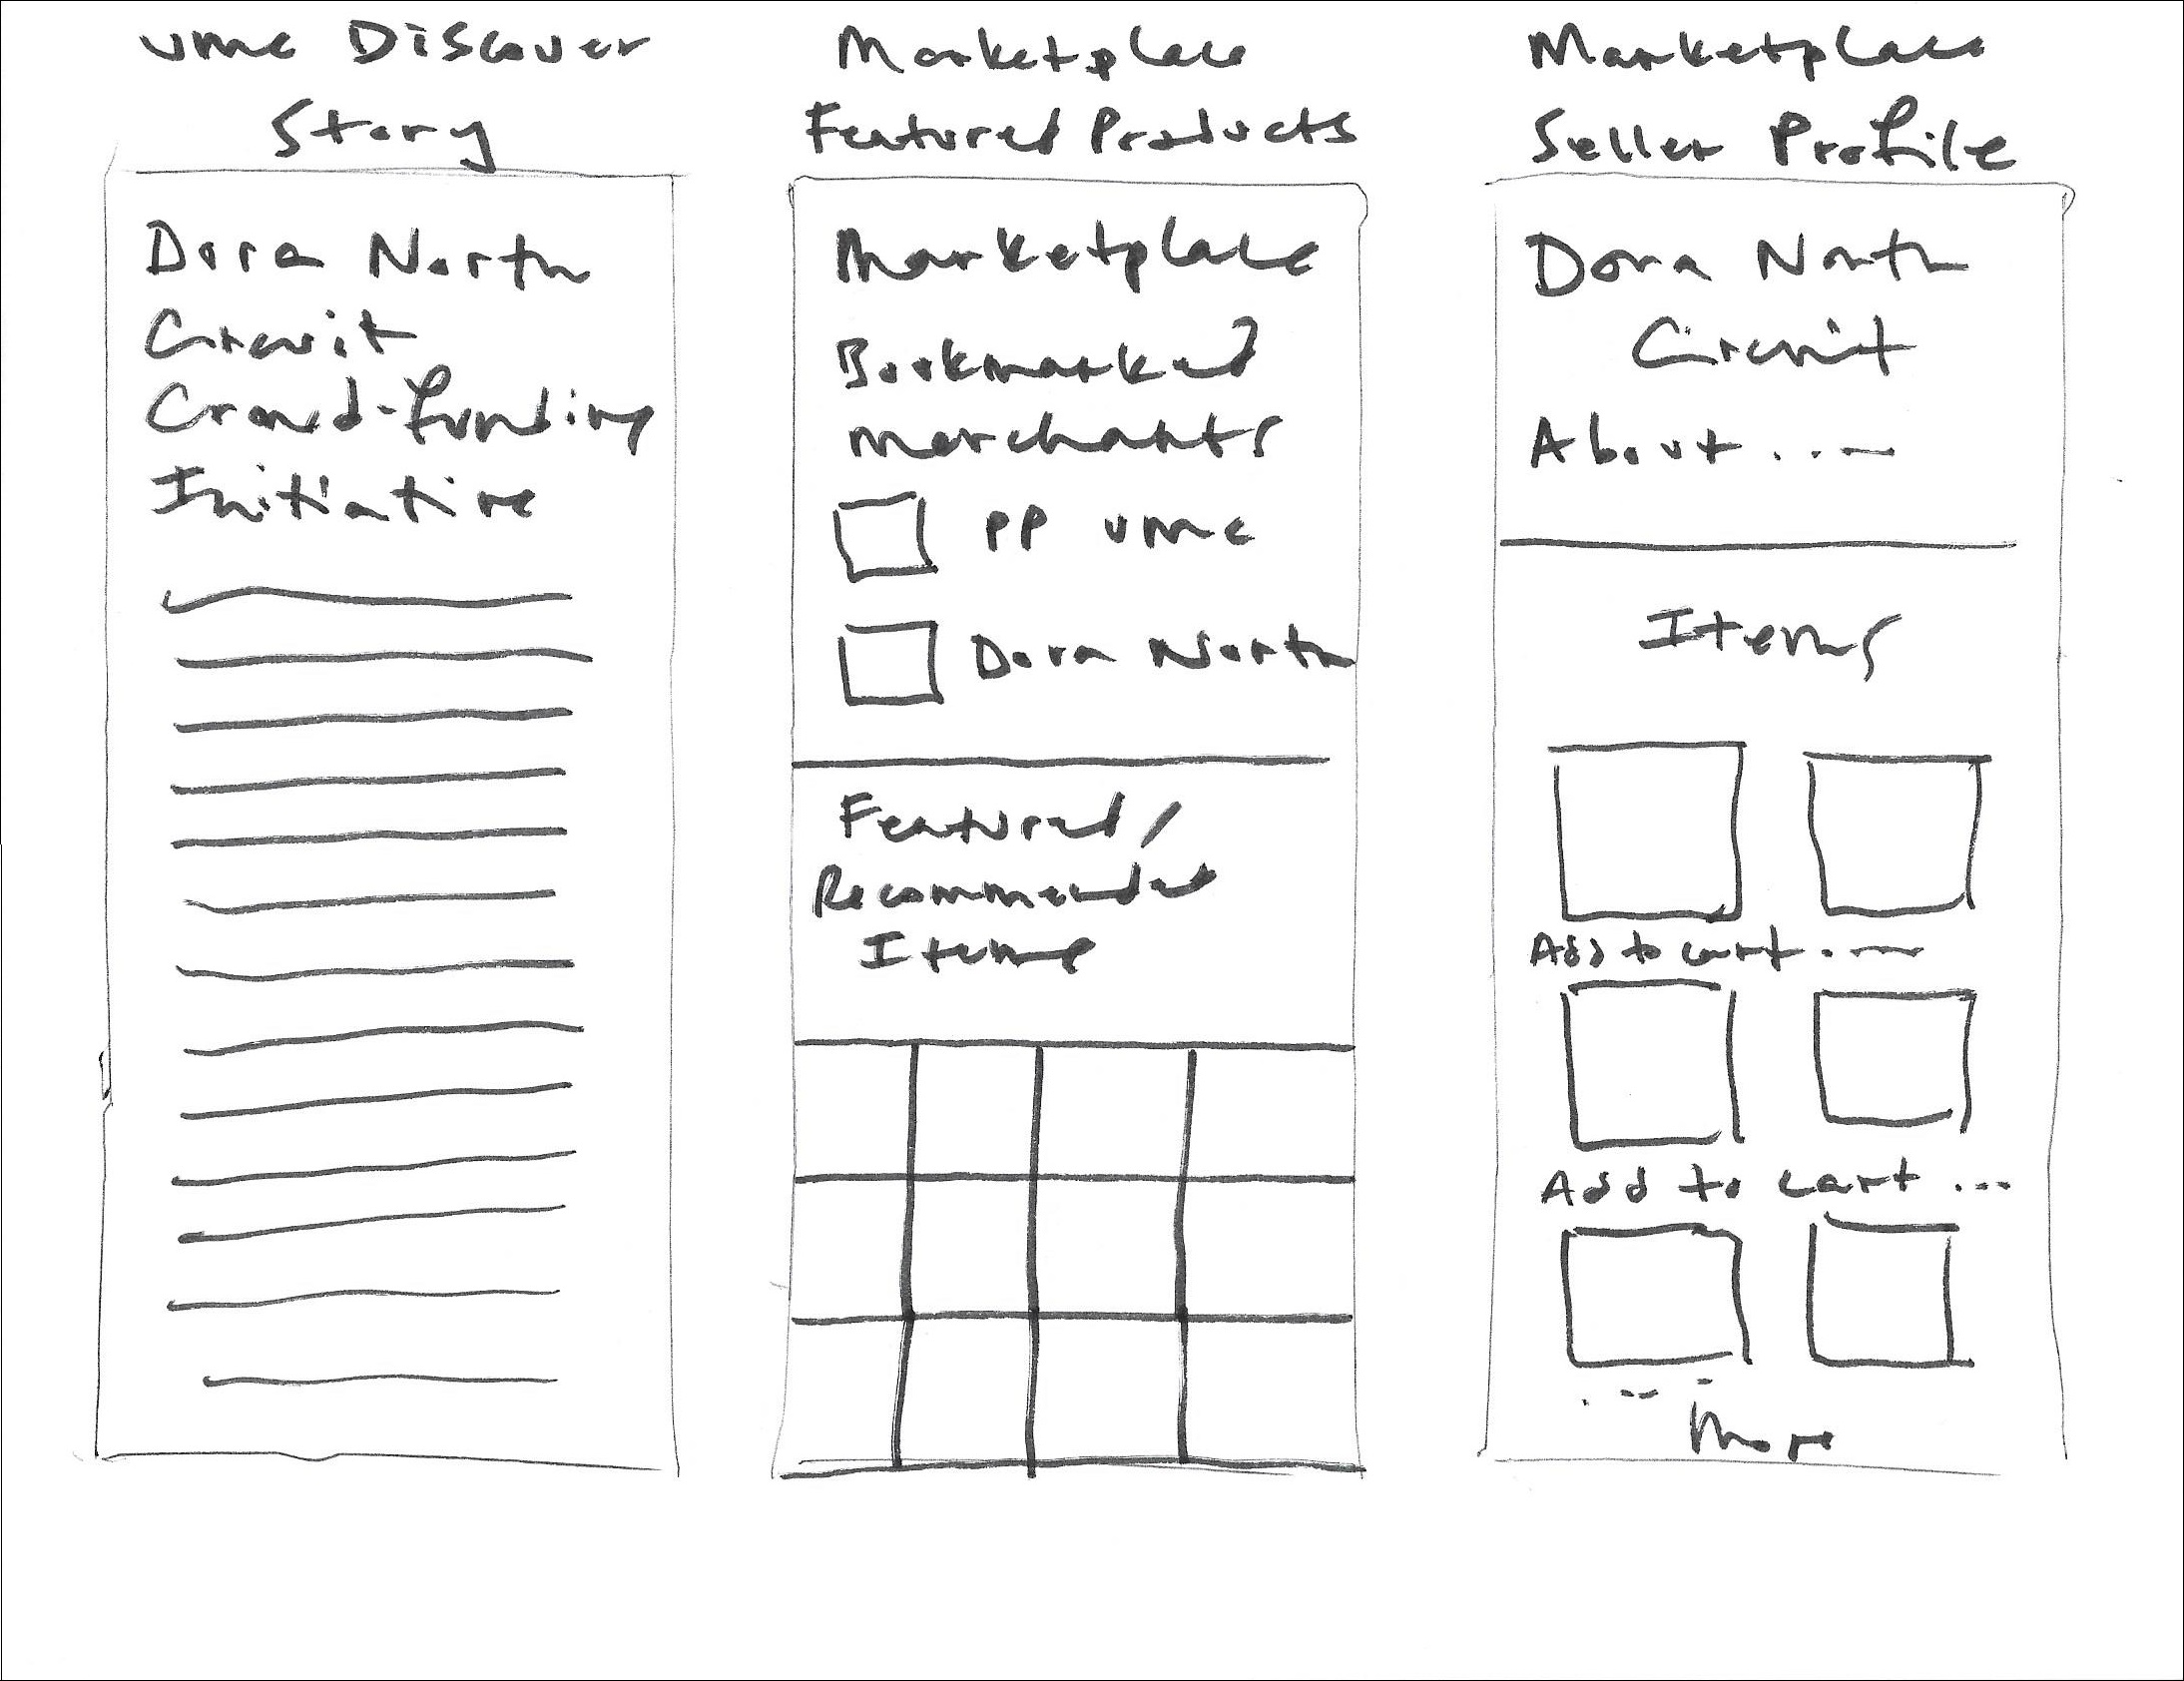 vme Discover
Story
Dora North
Circuit
Crowd-funding
Initiative
Marketplace
Featured Products
Marketplace
Bookmarked
merchants
PP vme
Dora North
Featured/
Recommended
Items
Marketplace
Seller Profile
Dora North
Circuit
About ...
Items
Add to cart ...
Add to cart ...
More